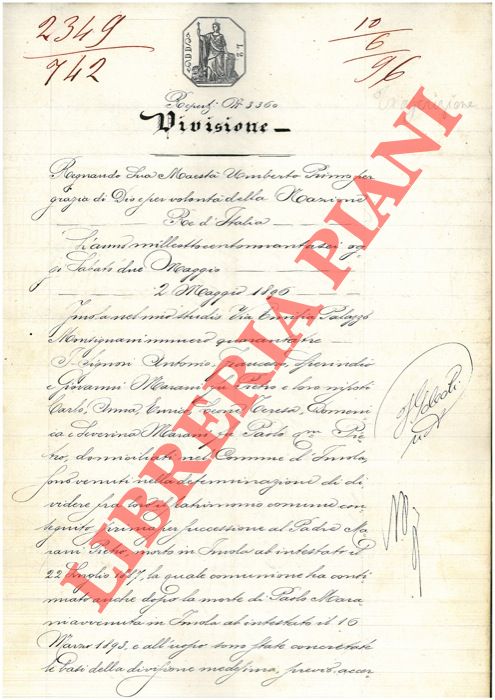 2349
742
10
6
96
Repert. N° 3360
Divisione
Regnando Sua Maestà Umberto Primo per
grazia di Dio e per volontà della Nazione
Re d'Italia
L'anno milleottocentonovantasei og
gi Sabato due Maggio
2 Maggio 1896
Imola nel mio studio Via Emilia Palazzo
Monsignani numero quarantatre
I Signori Antonio, Francesco, Sperindio
e Giovanni Marani fu Pietro e loro nipoti
Carlo, Anna, Enrico, Teresa, Domeni
ca e Severina Marani fu Paolo
tro, domiciliati nel Comune d'Imola,
sono venuti nella determinazione di di
videre fra loro il patrimonio comune con
seguito, prima per successione al Padre Ma
rani Pietro, morto in Imola ab intestato il
22 Luglio 1887, la quale comunione ha conti
nuato anche dopo la morte di Paolo Mara
ni avvenuta in Imola ab intestato il 16
Marzo 1893, e all'uopo sono state concretate
le basi della divisione medesima, previo accer
LIBRERIA PIANI